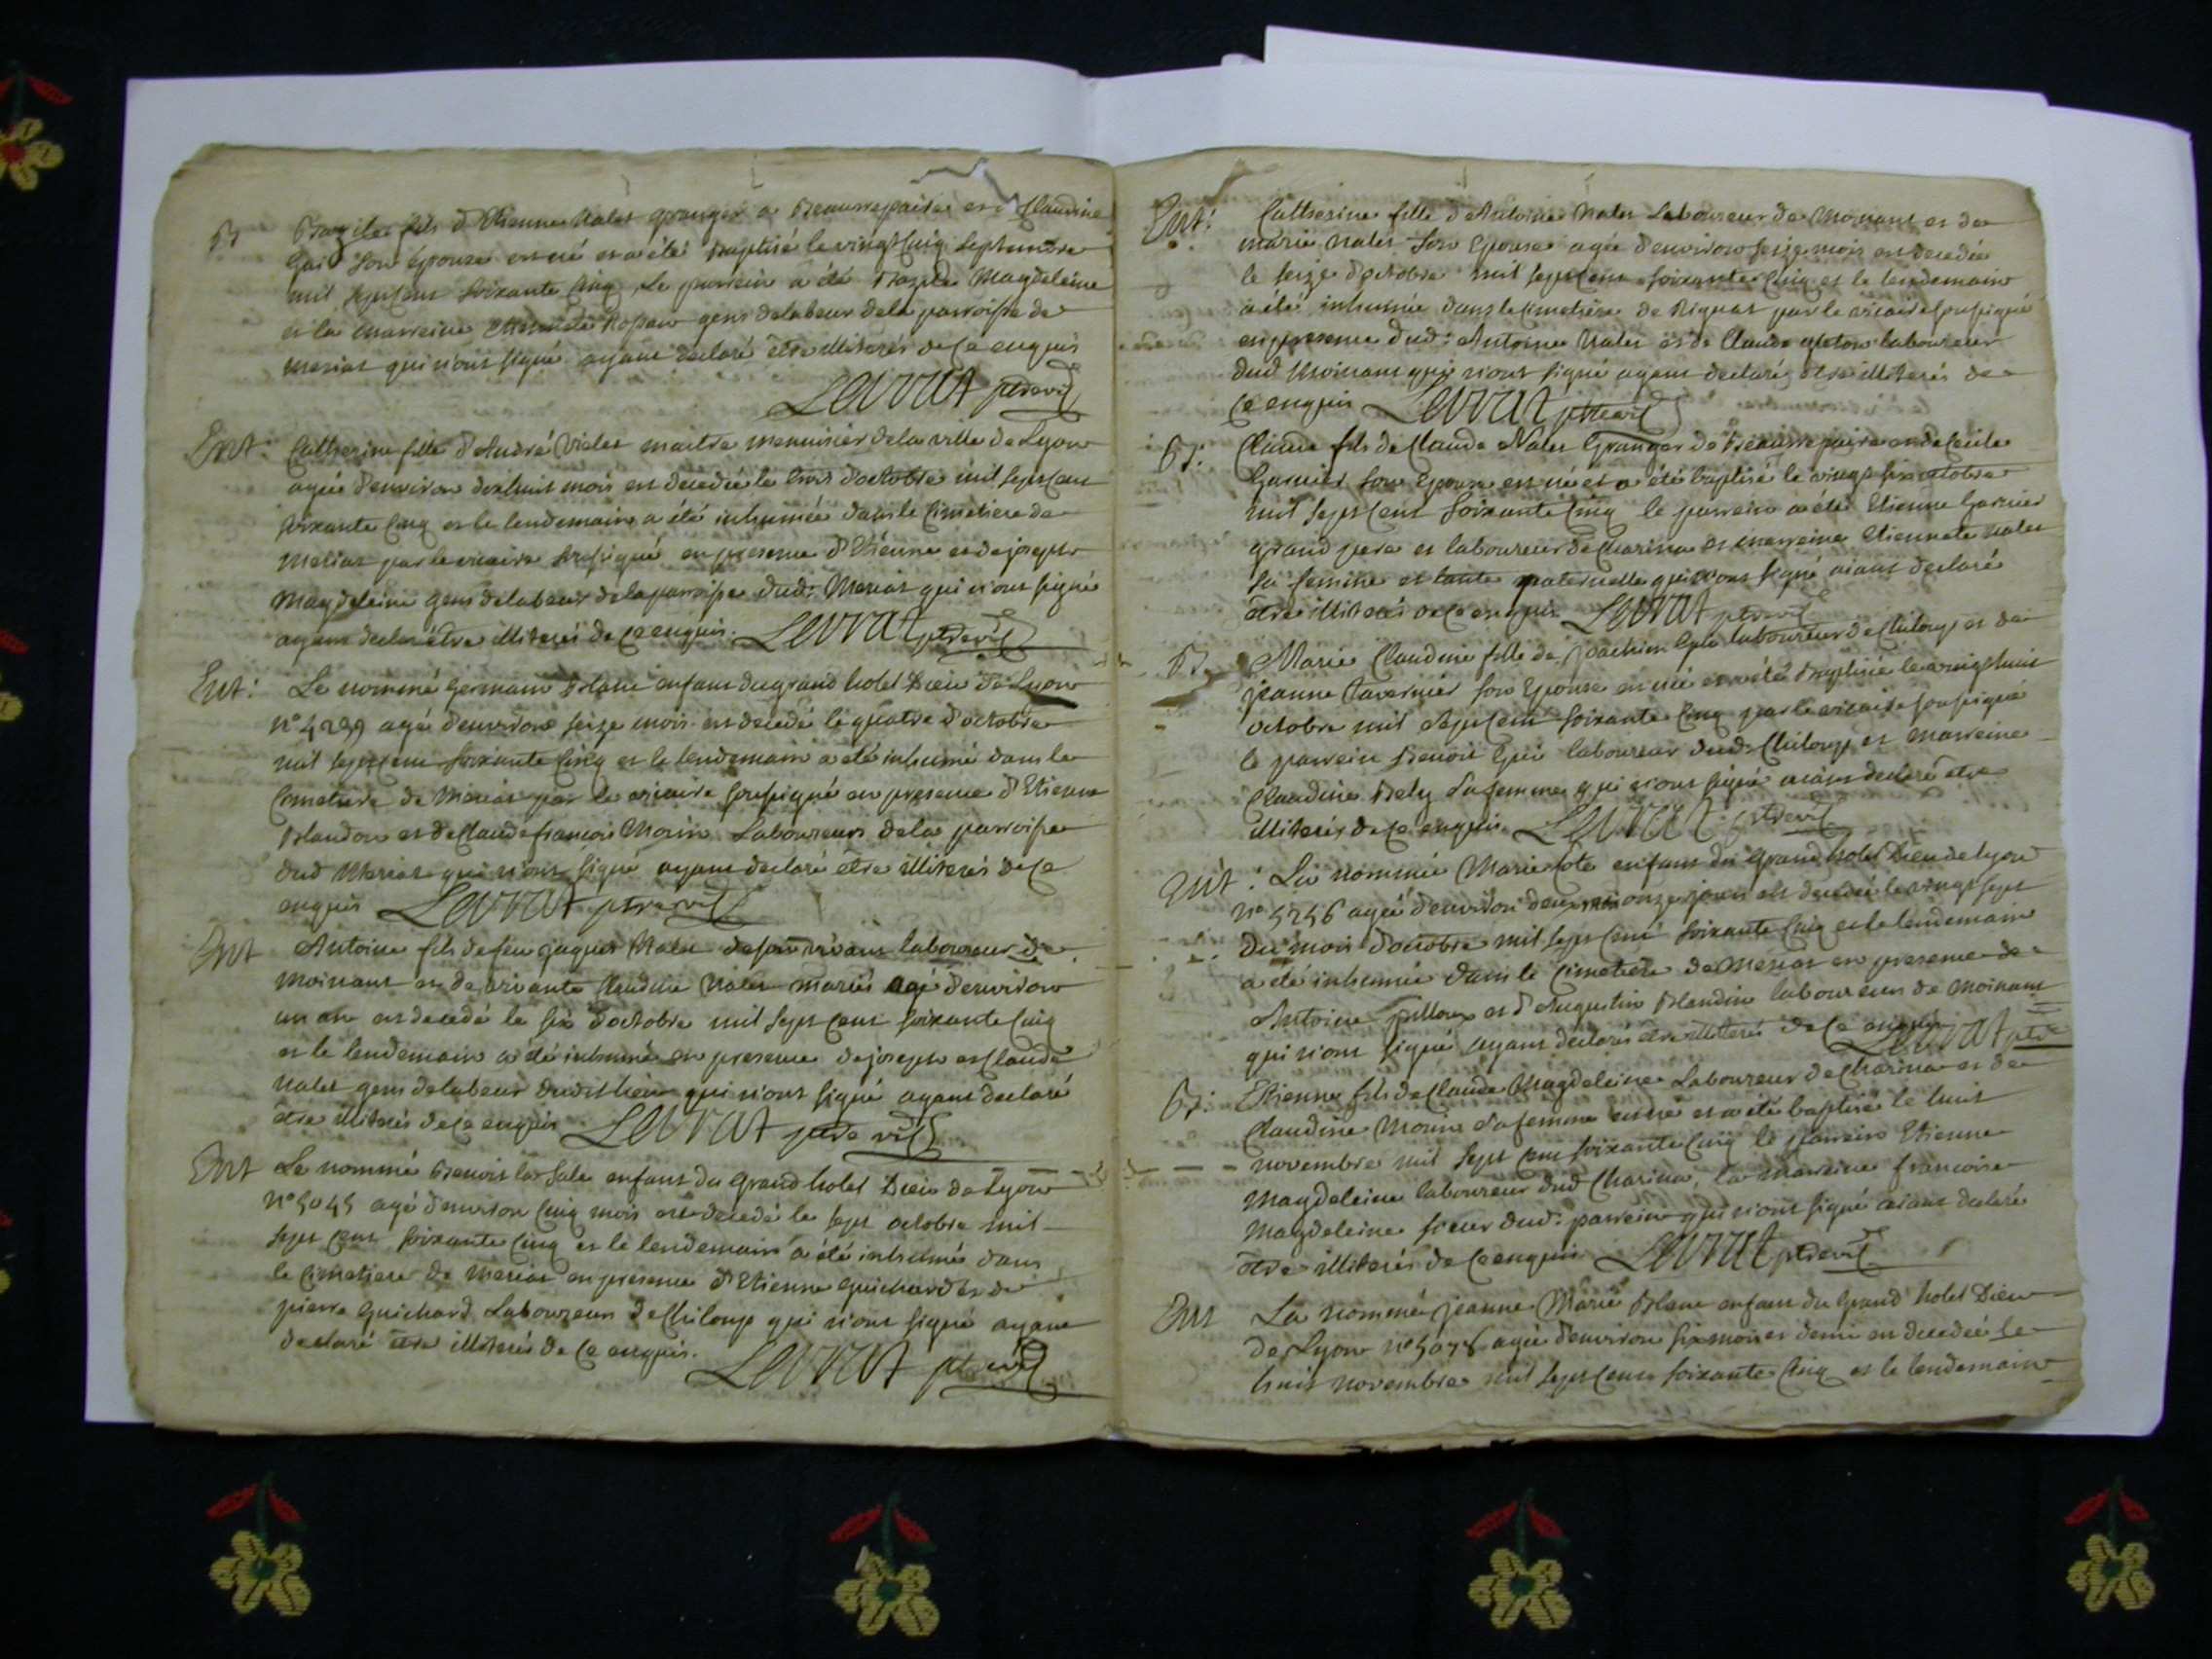 B Bazile fils d'Etienne Nalet granger a Beaurepaire et Claudine
son épouse est né et a été baptisé le vingt cinq septembre
mil sept cent soixante cinq, le parrein a été Bazile Magdeleine
et la marreine gens de labeur de la parroisse de
meriat qui n'ont signé ayant declaré etre illiterés de ce enquis
Levrat ptre vic
Ent: Catherine fille d'André Vialet maitre menuisier de la ville de Lyon
agée d'environ dixhuit mois est decedée le trois d'octobre mil sept cent
soixante cinq et le lendemain a été inhumée dans le cimetiere de
meriat par le vicaire soussigné en presence d'Etienne et de joseph
Magdeleine gens de labeur de la parroisse dud: Meriat qui n'ont signé
ayant declaré être illiterés de ce enquis. Levrat ptre vic
Ent: Le nommé Germain Blanc enfant du grand hotel Dieu de Lyon
n° 4299 agé d'environ seize mois est decedé le quatre d'octobre
mil sept cent soixante cinq et le lendemain a été inhumé dans le
cimetiere de Meriat par le vicaire soussigné en presence d'Etienne
Blandon et de Claude francois Morin Laboureurs de la parroisse
dud Meriat qui n'ont signé ayant declaré etre illiterés de ce
enquis Levrat ptre vic
Ent Antoine fils de feu jaques Nalet de son vivant laboureur de
moinant et de vivante Claudine Nalet mariés agé d'environ
un an est decedé le six d'octobre mil sept cent soixante cinq
et le lendemain a été inhumé en presence de joseph et Claude
nalet gens de labeur dudit lieu qui n'ont signé ayant declaré
etre illiterés de ce enquis Levrat ptre vic
Ent Le nommé Benoit la Sale enfant du Grand hotel Dieu de Lyon
n° 5045 agé d'environ cinq mois est decedé le sept octobre mil
sept cent soixante cinq et le lendemain a été inhumé dans
le cimetiere de Meriat en presence d'Etienne Guichard et de
pierre Guichard Laboureurs de Chiloup qui n'ont signé ayant
declaré etre illiterés de ce enquis.
Levrat ptre vic
Ent: Catherine fille d'Antoine Nalet Laboureur de Moinant et de
marie Nalet son Epouse agée d'environ seize mois est decedée
le seize d'octobre mil sept cent soixante cinq et le lendemain
a été inhumée dans le cimetiere de par le vicaire soussigné
en presence dud: Antoine Nalet et de Claude laboureur
dud Moinant qui n'ont signé ayant declaré etre illiterés de
ce enquis Levrat ptre vic
B: Claude fils de Claude Nalet Granger de Beaurepaire et de Cecile
Garnier son Epouse est né et a été baptisé le vingt six octobre
mil sept cent soixante cinq le parrein a été Etienne Garnier
grand pere et laboureur de Charina et marreine Etiennete Nalet
sa femme et tante paternelle qui n'ont signé aiant declaré
etre illiterés de ce enquis Levrat ptre vic
B. Marie Claudine fille de joachim laboureur de Chiloup et de
jeanne Tavernier son Epouse est née et a été baptisée le vingt huit
octobre mil sept cent soixante cinq par le vicaire soussigné
le parrein Benoit laboureur dud: Chiloup et marreine
Claudine Bely sa femme qui n'ont signé aiant declaré etre
illiterés de ce enquis Levrat ptre vic
Ent: La nommée Marie Cote enfant du Grand hotel Dieu de Lyon
n° 5256 agée d'environ deux mois onze jours est decedée le vingt sept
du mois d'octobre mil sept cent soixante cinq et le lendemain
a été inhumée dans le cimetiere de Meriat en presence de
Antoine pilloux et d'Augustin Blandin laboureurs de Moinant
qui n'ont signé ayant declaré etre illiterés de ce enquis Levrat ptre
B: Etienne fils de Claude Magdeleine Laboureur de Charina et de
Claudine Morin sa femme est né et a été baptisé le huit
novembre mil sept cent soixante cinq le parrein Etienne
Magdeleine laboureur dud Charina, la marreine francoise
Magdeleine soeur dud: parrein qui n'ont signé aiant declaré
etre illiterés de ce enquis Levrat ptre vic
Ent La nommée jeanne Marie Blanc enfant du Grand hotel Dieu
de Lyon n° agée d'environ six mois et demi est decedée le
huit novembre mil sept cent soixante cinq et le lendemain